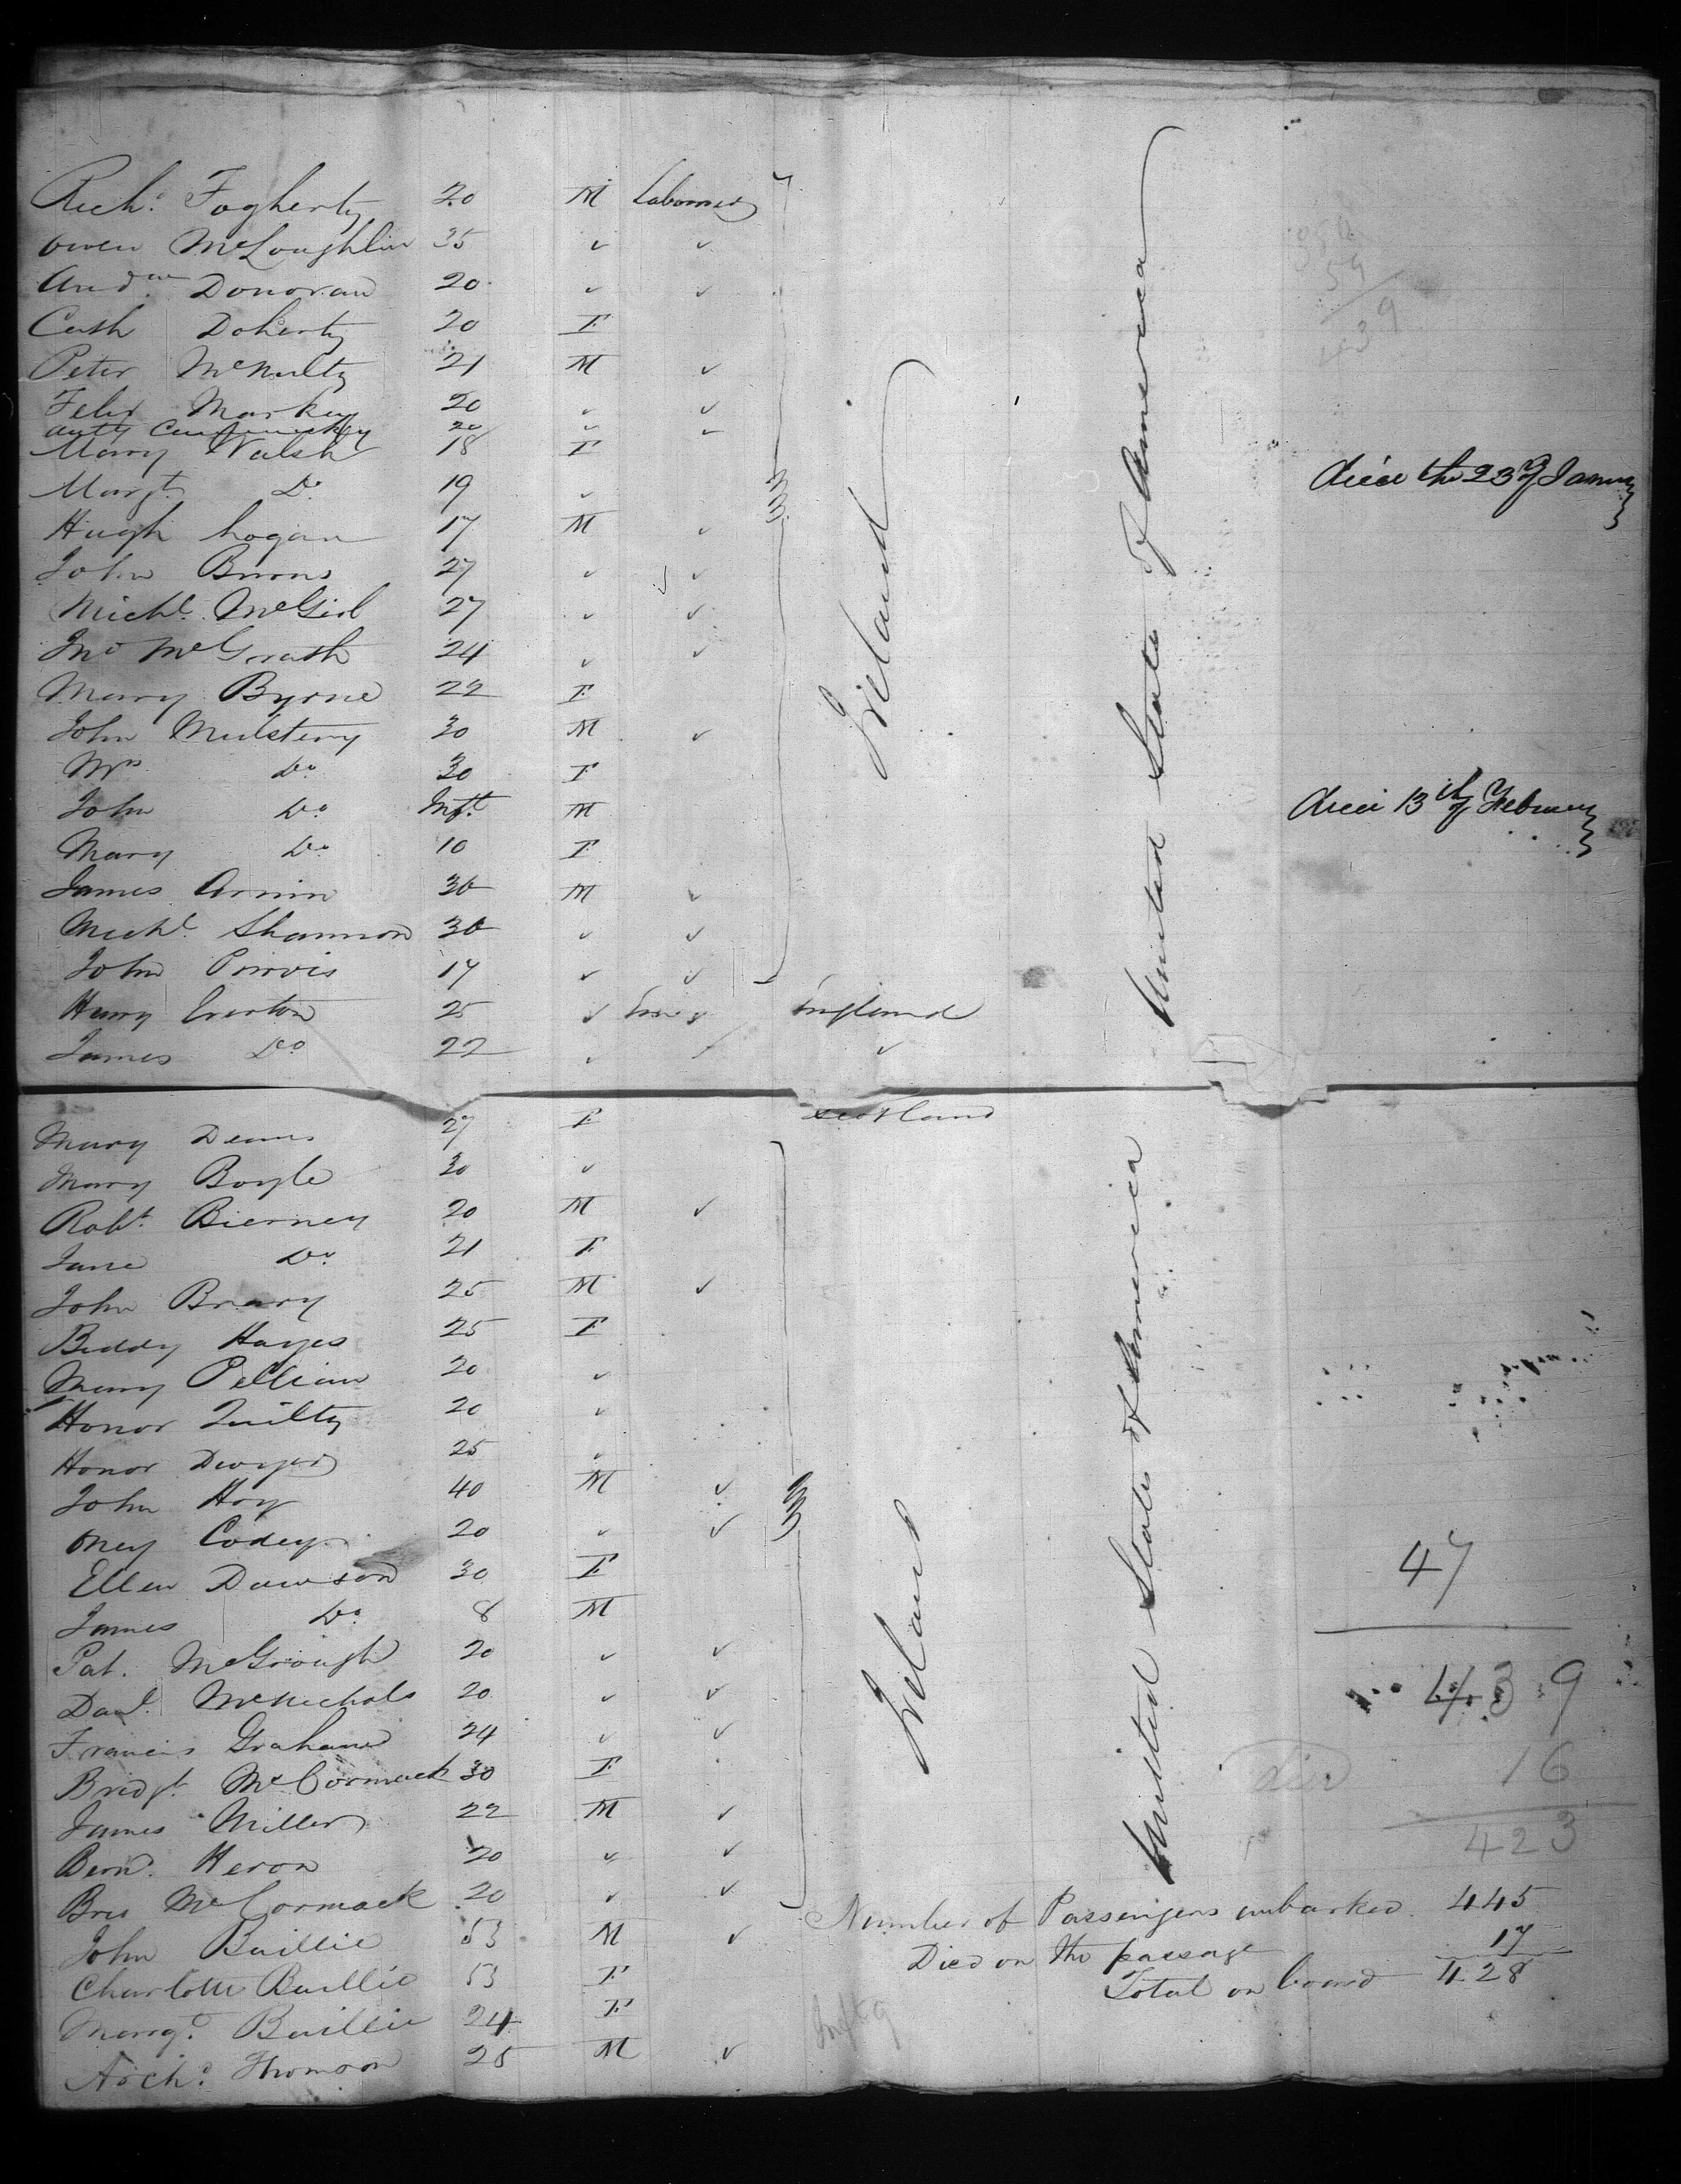 Rich.d Fogherty 20 M Labourer
Owen McLoughlin 35 ✓ ✓
And.w Donovan 20 ✓ ✓
Cath Doherty 20 F
Peter McNulty 21 M ✓
Felix Markey 20 ✓ ✓
20 ✓ ✓
Mary Walsh 18 F
Margt. Do. 19 ✓ died the 23 of January
Hugh Logan 17 M ✓
John Burns 27 ✓ ✓
Michl. McGirl 27 ✓ ✓
Jno McGrath 24 ✓ ✓
Mary Byrne 22 F
John 30 M ✓
Mrs Do. 30 F
John Do. Inft. M died 13th of February
Mary Do. 10 F
James 30 M ✓
Michl. Shannon 30 ✓ ✓
John Purvis 17 ✓ ✓
Ireland
United States of America
Harry Everton 25 ✓ England
James Do 22 ✓ ✓
Mary Deans 27 F Scotland
Mary Boyle 30 ✓
Robt. Bierney 20 M ✓
Jane Do. 21 F
John Brary 25 M ✓
Biddy Hayes 25 F
Mary 20 ✓
Honor Quilty 20 ✓
Honor Dwyer 25 ✓
John Hoy 40 M ✓
Codey 20 ✓ ✓
Ellen Dawson 30 F
James Do. 8 M
Pat. McGrough 20 ✓ ✓
Danl. McNichols 20 ✓ ✓
Francis Graham 24 ✓ ✓
Bridgt. McCormack 30 F
James Miller 22 M ✓
Bernd. Heron 20 ✓ ✓
McCormack 20 ✓ ✓
Ireland
United States of America
John Baillie 53 M ✓
Charlotte Baillie 53 F
Margt. Baillie 24 F
Archd. Thomson 25 M ✓
59
439
47
439
16
423
Number of Passengers embarked 445
Died on the passage 17
Total on board 428